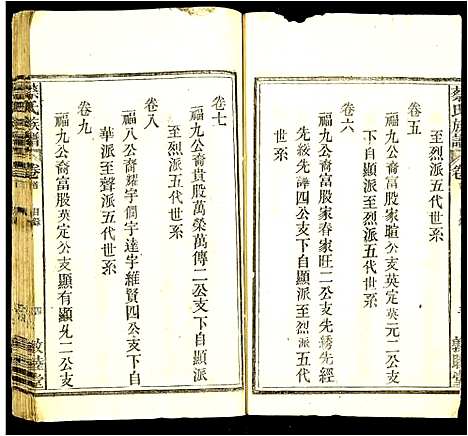 卷五
福九公裔富股家暄公支英定英元二公支下自顯派
至烈派五代世系
卷六
福九公裔富股家春家旺二公支先綉先經
先綫先譚四公支下自顯派至烈派五代世系
卷七
福九公裔貴股萬榮萬傳二公支下自顯派
至烈派五代世系
卷八
福八公裔耀宇調宇達宇維賢四公支下自
華派至聲派五代世系
卷九
福九公裔富股英定公支顯有顯二公支
蔡氏族譜
卷首
目錄
四
敦睦堂